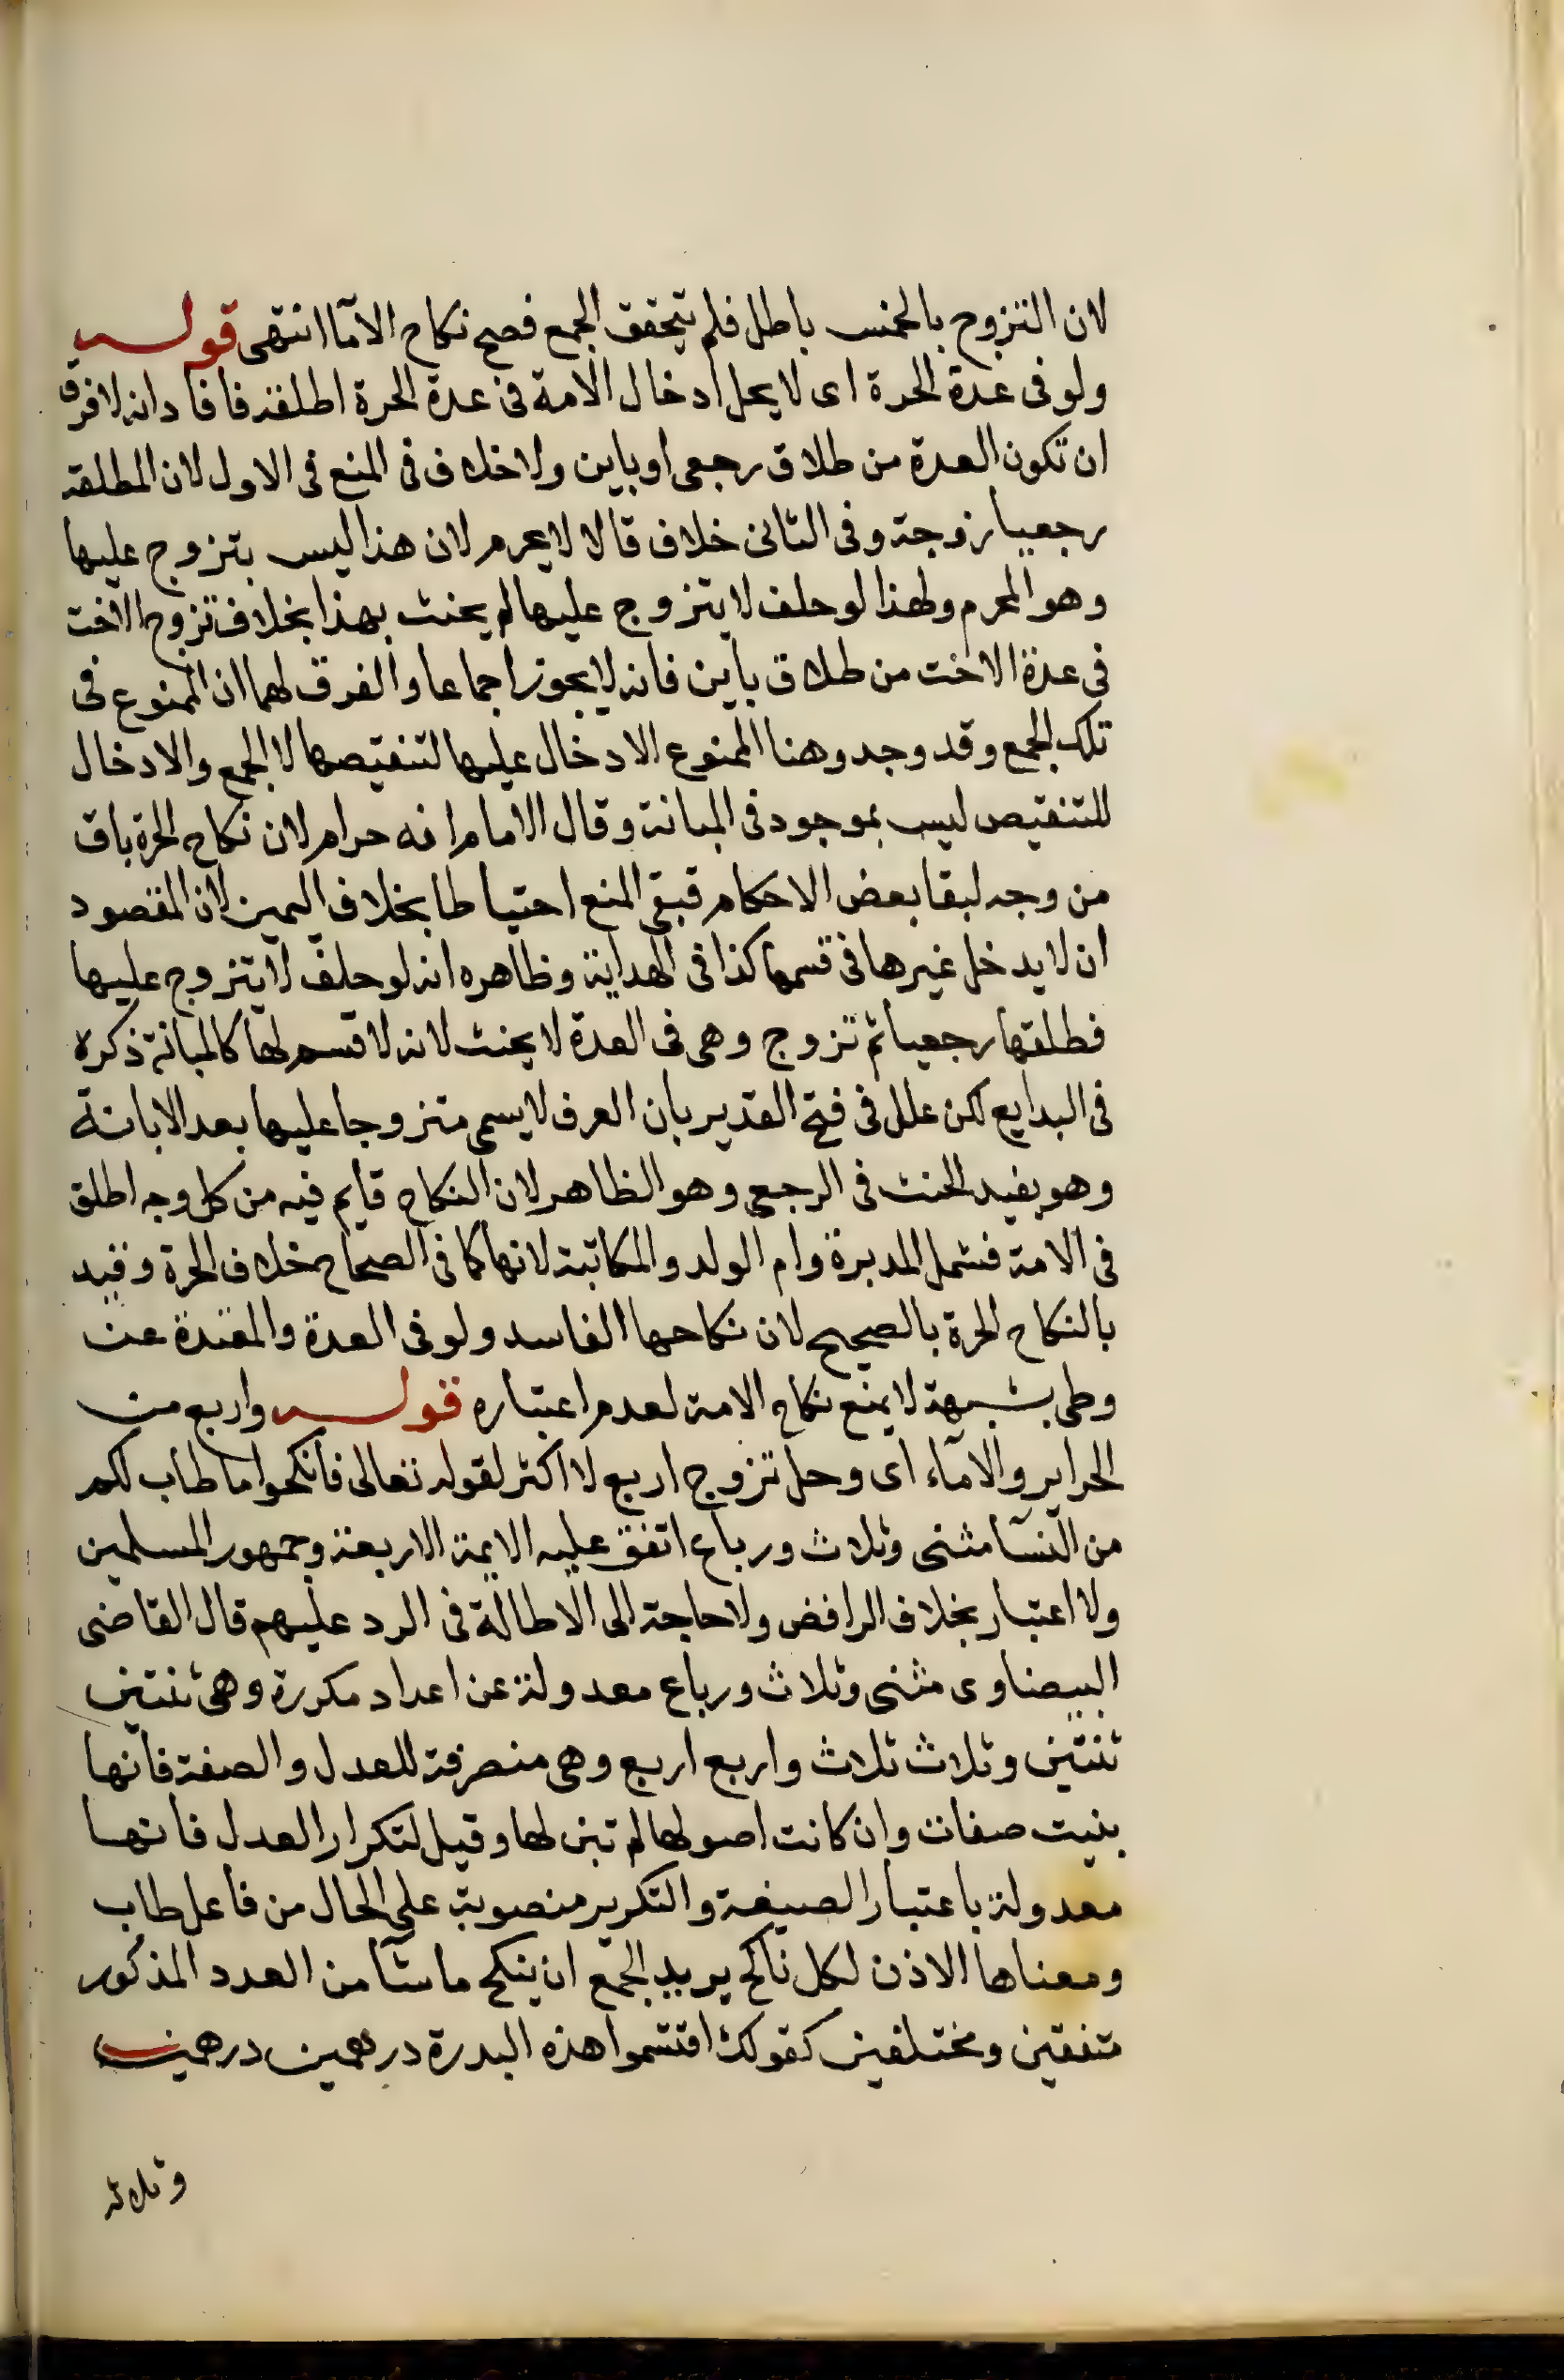 لان التزوج بالخمس باطل فلم يتحقق الجمع فصح نكاح الآما انتهى قوله
ولو فى عدة الحرة اى لا يحل ادخال الامة فى عدة الحرة اطلقه فافاد انه لا فرق
ان تكون العدة من طلاق رجعى او باين ولا خلاف فى المنع فى الاول لان المطلقة
رجعيا زوجة وفى الثانى خلاف قالا لا يحرم لان هذا ليس بتزوج عليها
وهو المحرم ولهذا لو حلف لا يتزوج عليها لم يحنث بهذا بخلاف تزوج الاخت
فى عدة الاخت من طلاق باين فانه لا يجوز اجماعا والفرق لهما ان الممنوع فى
تلك الجمع وقد وجد وهنا الممنوع الادخال عليها لتنقيصها لا الجمع والادخال
للتنقيص ليس بموجود فى المبانة وقال الامام انه حرام لان نكاح الحرة باق
من وجه لبقا بعض الاحكام فبقى المنع احتياطا بخلاف اليمين لان المقصود
ان لا يدخل غيرها فى قسمها كذا فى الهداية وظاهره انه لو حلف لا يتزوج عليها
فطلقها رجعيا ثم تزوج وهى فى العدة لا يحنث لانه لا قسم لها كالمبانة ذكره
فى البدايع لكن علل فى فتح القدير بان العرف لا يسمى متزوجا عليها بعد الابانة
وهو يفيد الحنث فى الرجعى وهو الظاهر لان النكاح قايم فيه من كل وجه اطلق
فى الامة فشمل المدبرة وام الولد والمكاتبة لانها كما فى الصحاح خلاف الحرة وقيد
بالنكاح الحرة بالصحيح لان نكاحها الفاسد ولو فى العدة والمعتدة عن
وطى بشبهة لا يمنع نكاح الامة لعدم اعتباره قوله واربع من
الحراير والآماء اى وحل تزوج اربع لا اكثر لقوله تعالى فانكحوا ما طاب لكم
من النسآ مثنى وثلاث ورباع اتفق عليه الايمة الاربعة وجمهور المسلمين
ولا اعتبار بخلاف الرافض ولا حاجة الى الاطالة فى الرد عليهم قال القاضى
البيضاوى مثنى وثلاث ورباع معدولة عن اعداد مكررة وهى ثنتين
ثنتين وثلاث ثلاث واربع اربع وهى منصرفة للعدل والصفة فانها
بنيت صفات وان كانت اصولها لم تبن لها وقيل لتكرار العدل فانها
معدولة باعتبار الصيغة والتكرير منصوبة على الحال من فاعل طاب
ومعناها الاذن لكل ناكح يريد الجمع ان ينكح ما شآ من العدد المذكور
متفقين ومختلفين كقولك اقتسموا هذه البدرة درهمين درهمين
وثلاثة